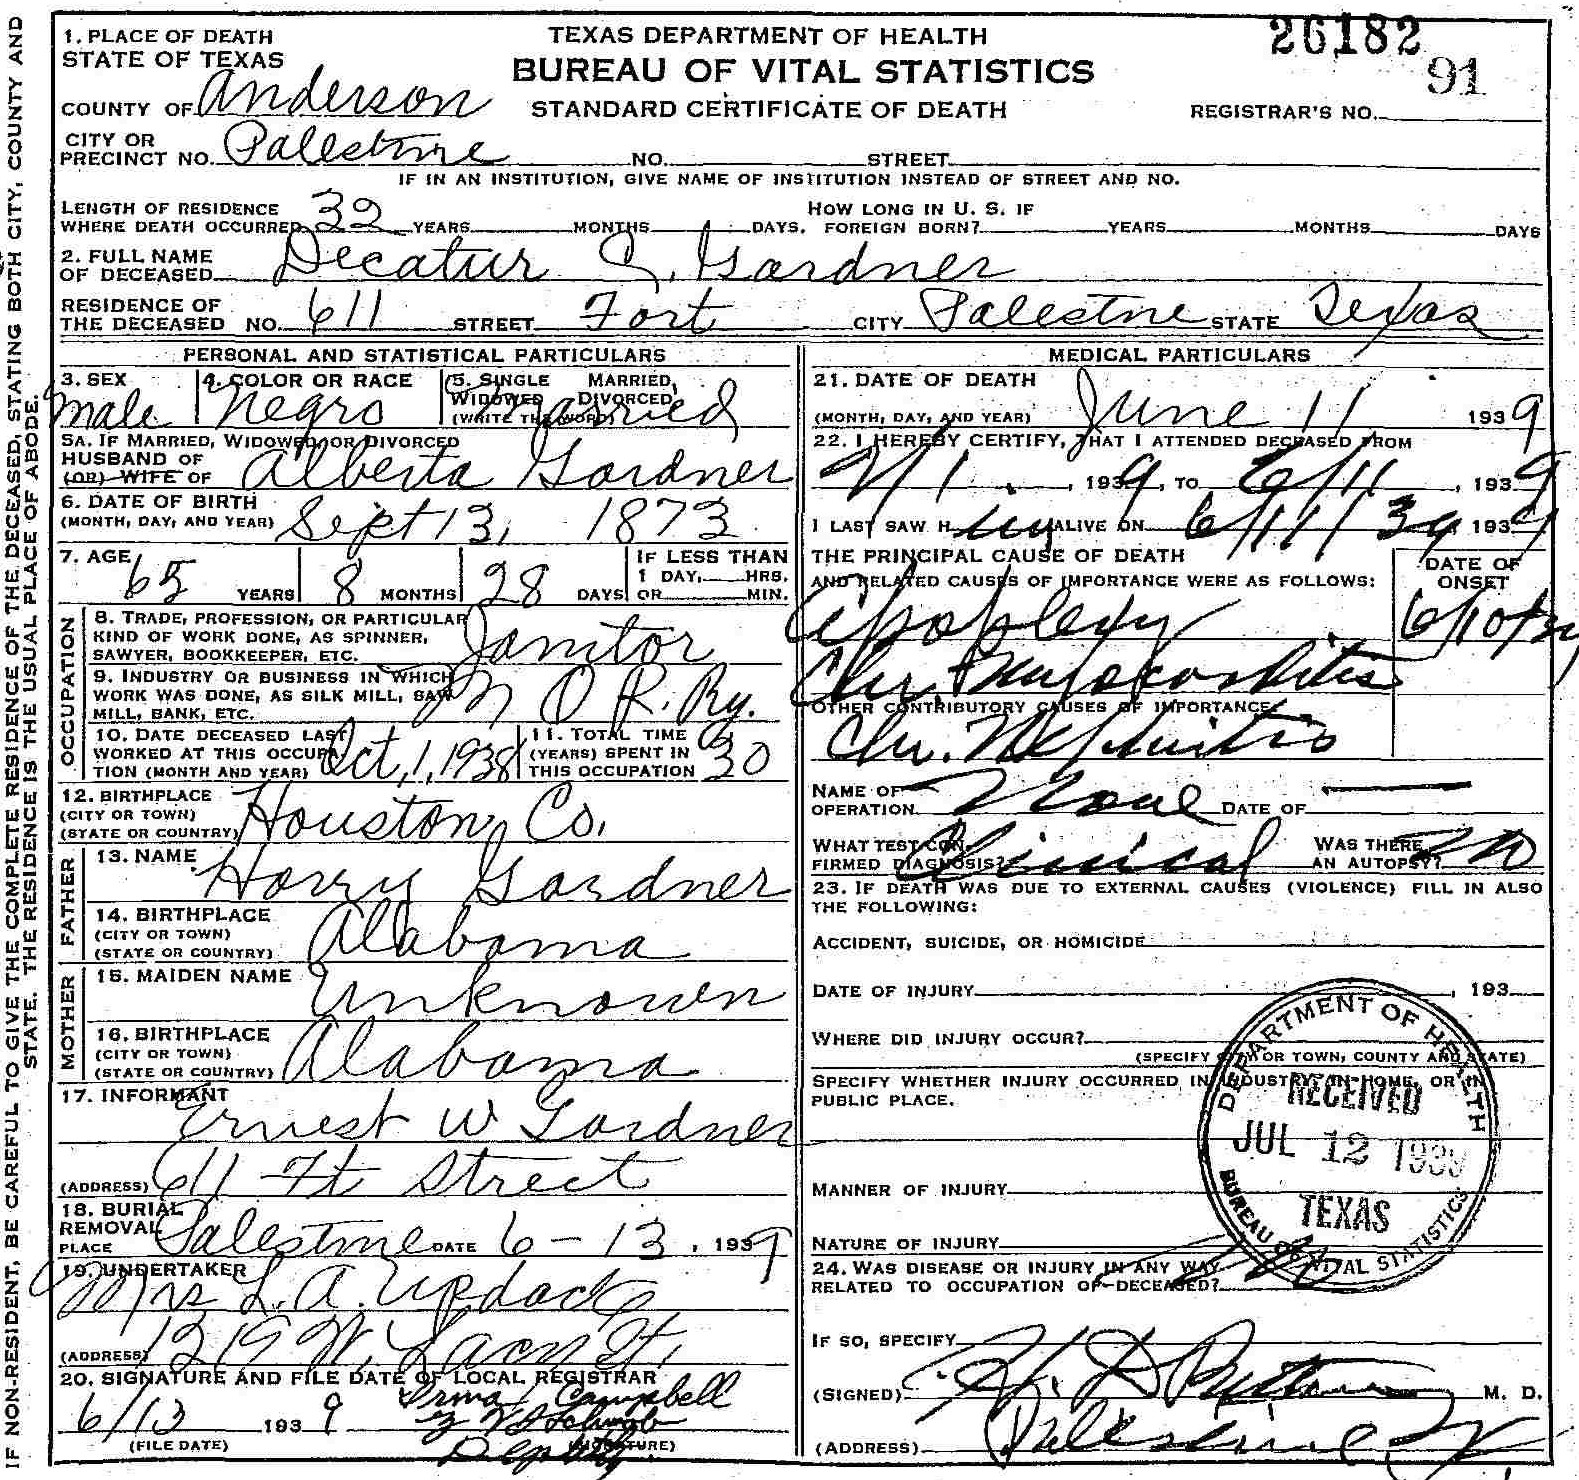 IF NON-RESIDENT, BE CAREFUL TO GIVE THE COMPLETE RESIDENCE OF THE DECEASED, STATING BOTH CITY, COUNTY AND
STATE. THE RESIDENCE IS THE USUAL PLACE OF ABODE.
26182
91
TEXAS DEPARTMENT OF HEALTH
BUREAU OF VITAL STATISTICS
STANDARD CERTIFICATE OF DEATH
REGISTRAR'S NO.
1. PLACE OF DEATH
STATE OF TEXAS
COUNTY OF Anderson
CITY OR
PRECINCT NO. Palestine NO. STREET
IF IN AN INSTITUTION, GIVE NAME OF INSTITUTION INSTEAD OF STREET AND NO.
LENGTH OF RESIDENCE HOW LONG IN U. S. IF
WHERE DEATH OCCURRED 32 YEARS MONTHS DAYS. FOREIGN BORN? YEARS MONTHS DAYS
2. FULL NAME
OF DECEASED Decatur Gardner
RESIDENCE OF
THE DECEASED NO. 611 STREET Fort CITY Palestine STATE Texas
PERSONAL AND STATISTICAL PARTICULARS
3. SEX 4. COLOR OR RACE 5. SINGLE MARRIED,
WIDOWED DIVORCED
(WRITE THE WORD)
Male Negro Married
5A. IF MARRIED, WIDOWED, OR DIVORCED
HUSBAND OF
(OR) WIFE OF Alberta Gardner
6. DATE OF BIRTH
(MONTH, DAY, AND YEAR) Sept 13, 1873
7. AGE 65 YEARS 8 MONTHS 28 DAYS
IF LESS THAN
1 DAY, HRS.
OR MIN.
OCCUPATION
8. TRADE, PROFESSION, OR PARTICULAR
KIND OF WORK DONE, AS SPINNER,
SAWYER, BOOKKEEPER, ETC. Janitor
9. INDUSTRY OR BUSINESS IN WHICH
WORK WAS DONE, AS SILK MILL, SAW
MILL, BANK, ETC. M O R. Ry.
10. DATE DECEASED LAST
WORKED AT THIS OCCUPA-
TION (MONTH AND YEAR) Oct, 1, 1938
11. TOTAL TIME
(YEARS) SPENT IN
THIS OCCUPATION 30
12. BIRTHPLACE
(CITY OR TOWN)
(STATE OR COUNTRY) Houston, Co.
FATHER
13. NAME Harry Gardner
14. BIRTHPLACE
(CITY OR TOWN)
(STATE OR COUNTRY) Alabama
MOTHER
15. MAIDEN NAME Unknown
16. BIRTHPLACE
(CITY OR TOWN)
(STATE OR COUNTRY) Alabama
17. INFORMANT
Ernest W Gardner
(ADDRESS) 611 Ft Street
18. BURIAL
REMOVAL
PLACE Palestine DATE 6-13, 1939
19. UNDERTAKER
Mrs L. A. Updack
(ADDRESS) 1219 W. Lacy St,
20. SIGNATURE AND FILE DATE OF LOCAL REGISTRAR
6/13 1939 Irma Campbell
Deputy
(FILE DATE) (SIGNATURE)
MEDICAL PARTICULARS
21. DATE OF DEATH
(MONTH, DAY, AND YEAR) June 11 1939
22. I HEREBY CERTIFY, THAT I ATTENDED DECEASED FROM
1939, TO 6/11, 1939
I LAST SAW H im ALIVE ON 6/11/39, 1939
THE PRINCIPAL CAUSE OF DEATH
AND RELATED CAUSES OF IMPORTANCE WERE AS FOLLOWS:
DATE OF
ONSET
Apoplexy 6/10/39
Chr. Myocarditis
OTHER CONTRIBUTORY CAUSES OF IMPORTANCE
Chr. Nephritis
NAME OF
OPERATION None DATE OF —
WHAT TEST CON-
FIRMED DIAGNOSIS? Clinical
WAS THERE
AN AUTOPSY? no
23. IF DEATH WAS DUE TO EXTERNAL CAUSES (VIOLENCE) FILL IN ALSO
THE FOLLOWING:
ACCIDENT, SUICIDE, OR HOMICIDE
DATE OF INJURY , 193
WHERE DID INJURY OCCUR?
(SPECIFY CITY OR TOWN, COUNTY AND STATE)
SPECIFY WHETHER INJURY OCCURRED IN INDUSTRY, IN HOME, OR IN
PUBLIC PLACE.
MANNER OF INJURY
NATURE OF INJURY
DEPARTMENT OF HEALTH
RECEIVED
JUL 12 1939
TEXAS
BUREAU OF VITAL STATISTICS
24. WAS DISEASE OR INJURY IN ANY WAY
RELATED TO OCCUPATION OF DECEASED? No
IF SO, SPECIFY
(SIGNED) M. D.
(ADDRESS) Palestine